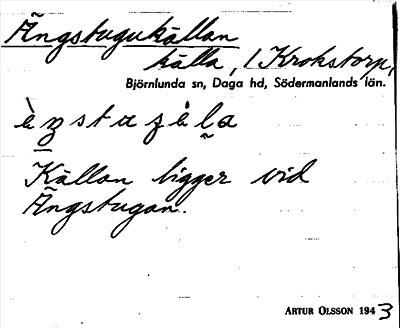 Ängstugukällan
källa, / Krokstorp,
Björnlunda sn, Daga hd, Södermanlands län.
Källan ligger vid
Ängstugan.
ARTUR OLSSON 1943